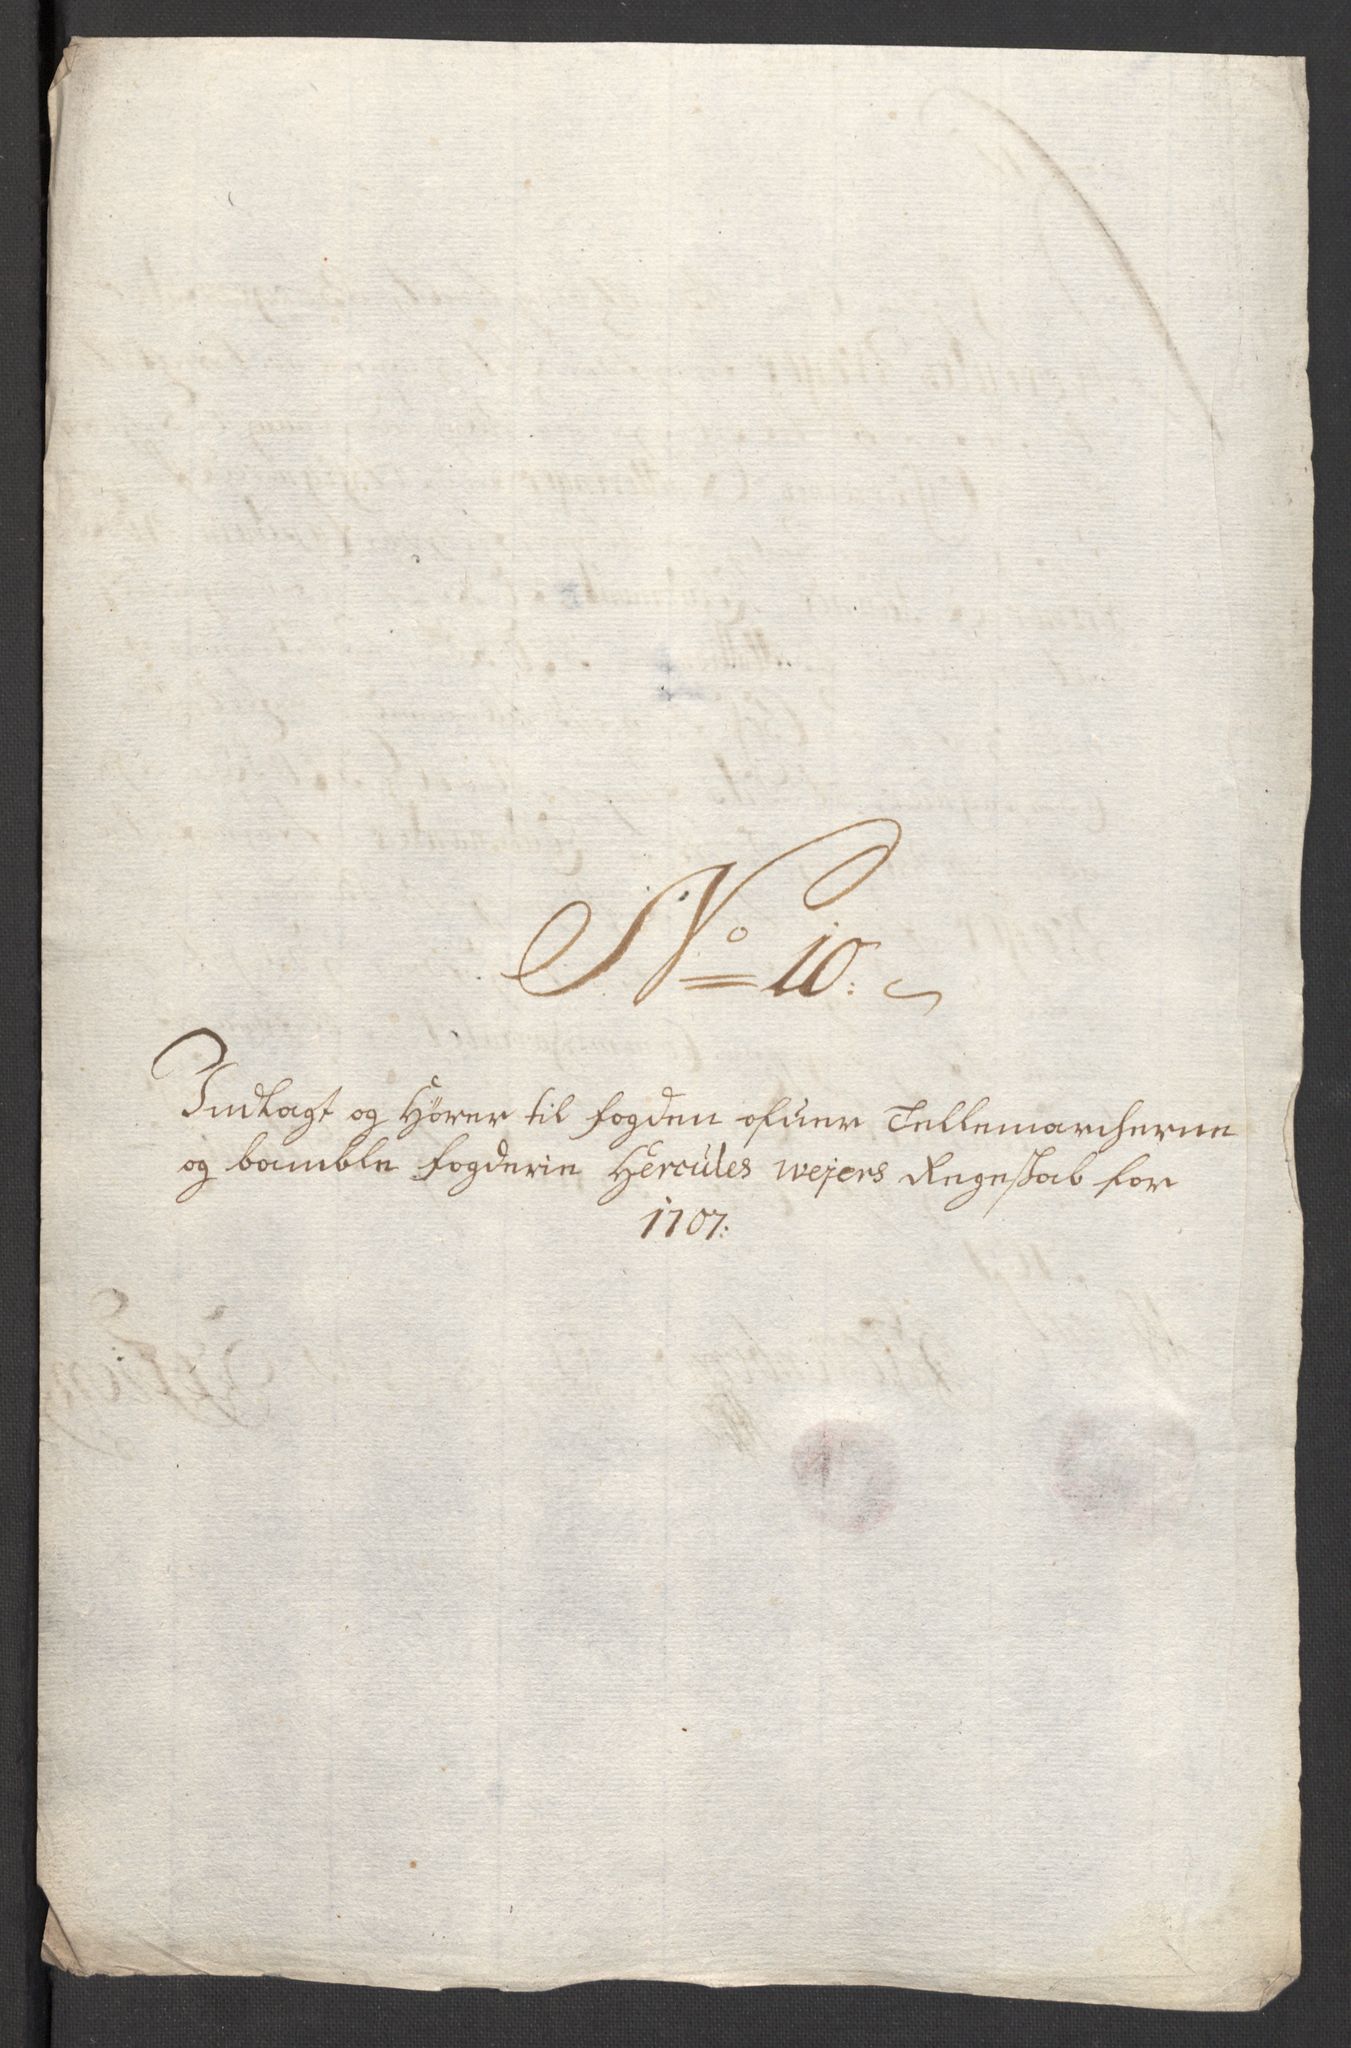 No 10.
Indlagt og Hörer til fogden ofuer Tellemarcherne
og bamble fogderie Hercules wejers Regeskab for
1707.